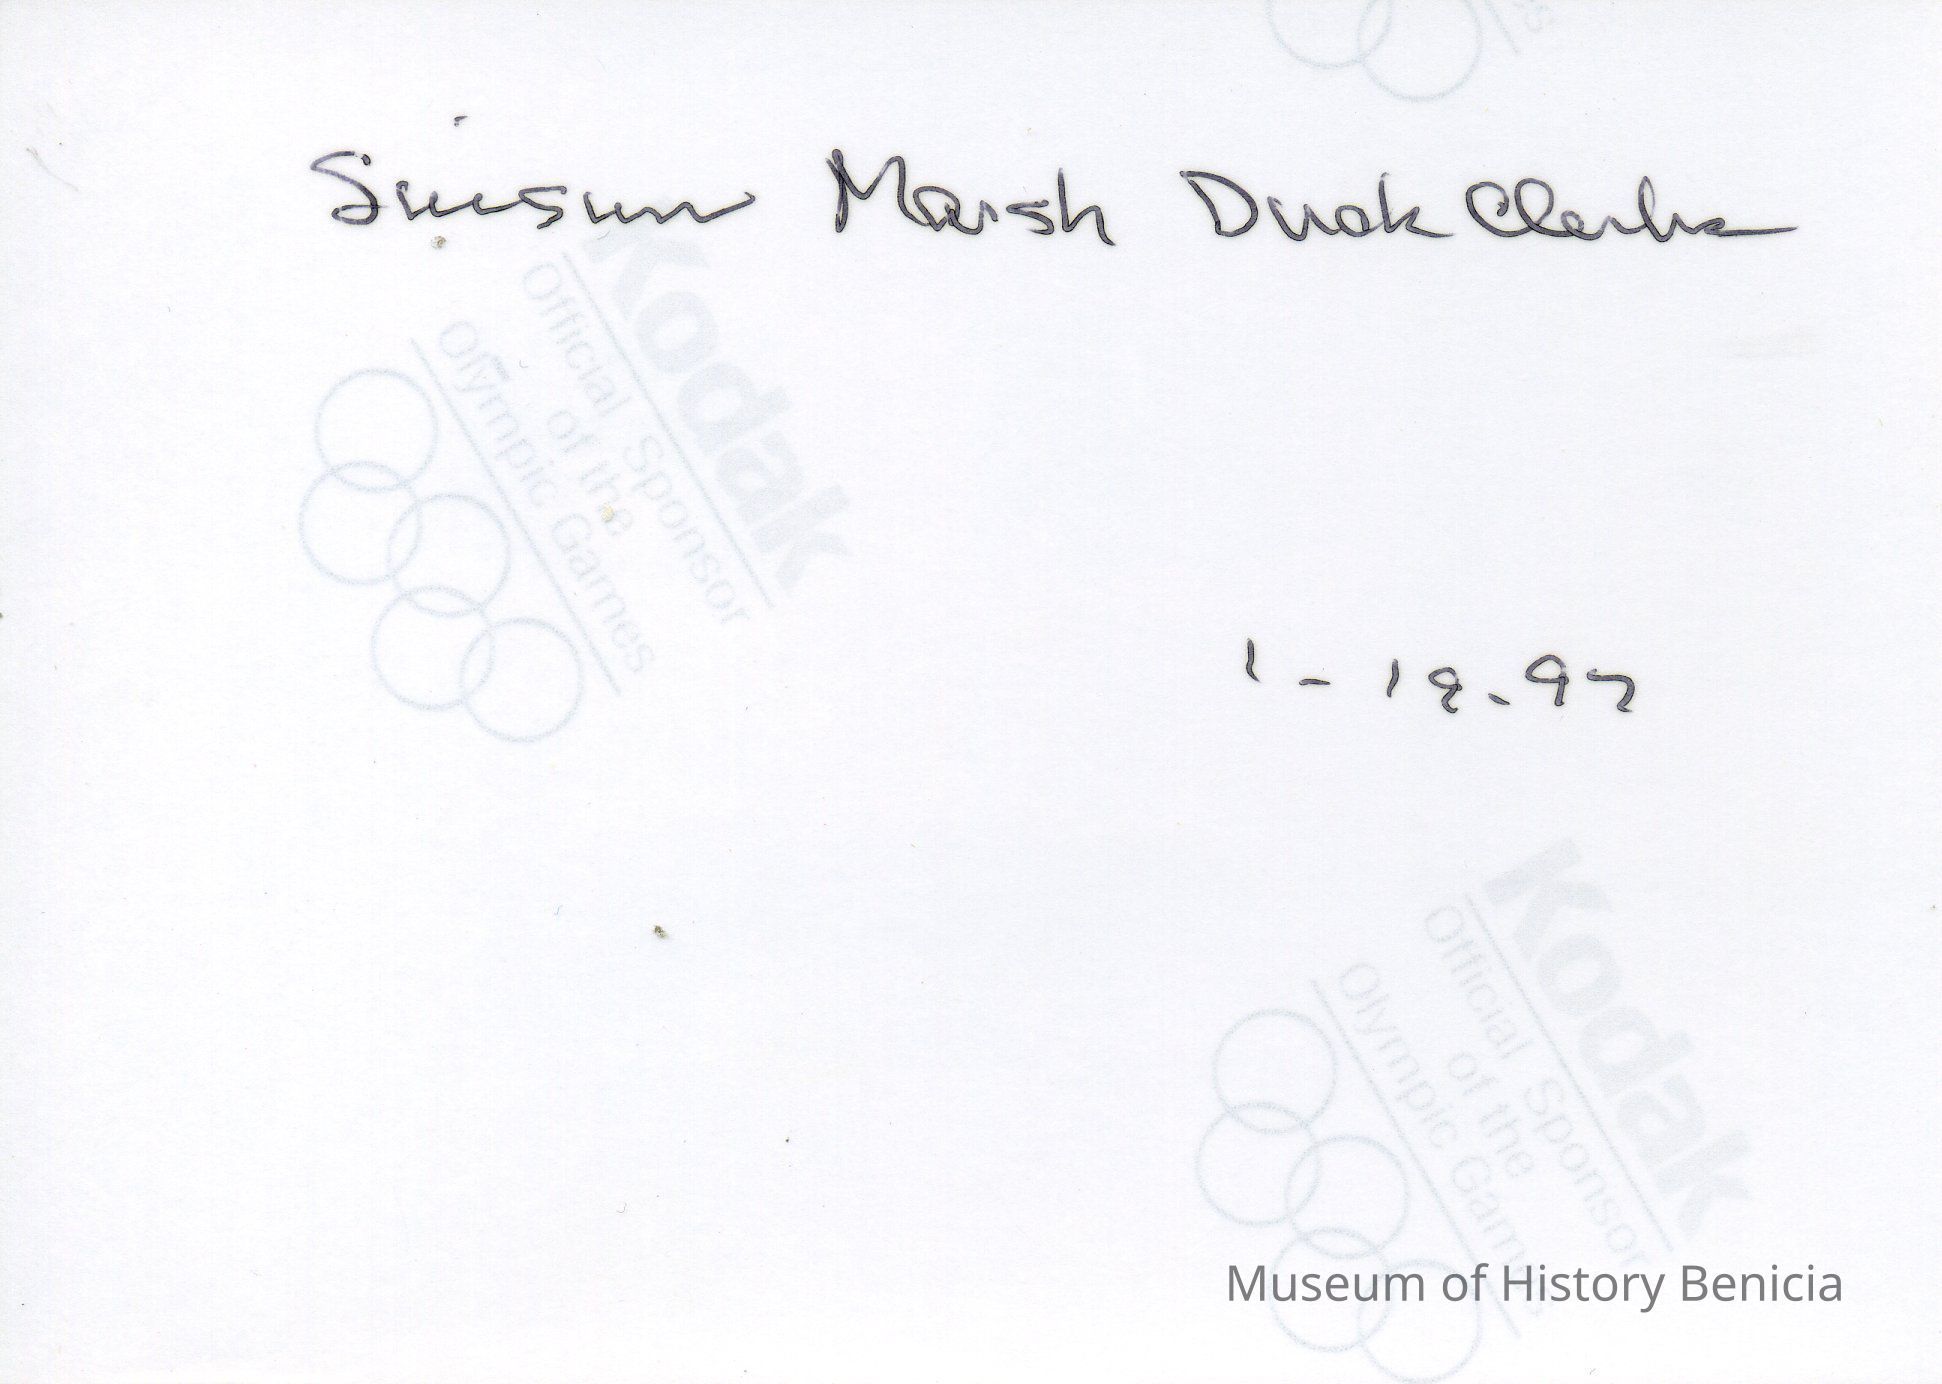 Suisun Marsh Duck Clubs
Kodak
Official Sponsor
of the
Olympic Games
1-19-97
Kodak
Official Sponsor
of the
Olympic Games
Museum of History Benicia